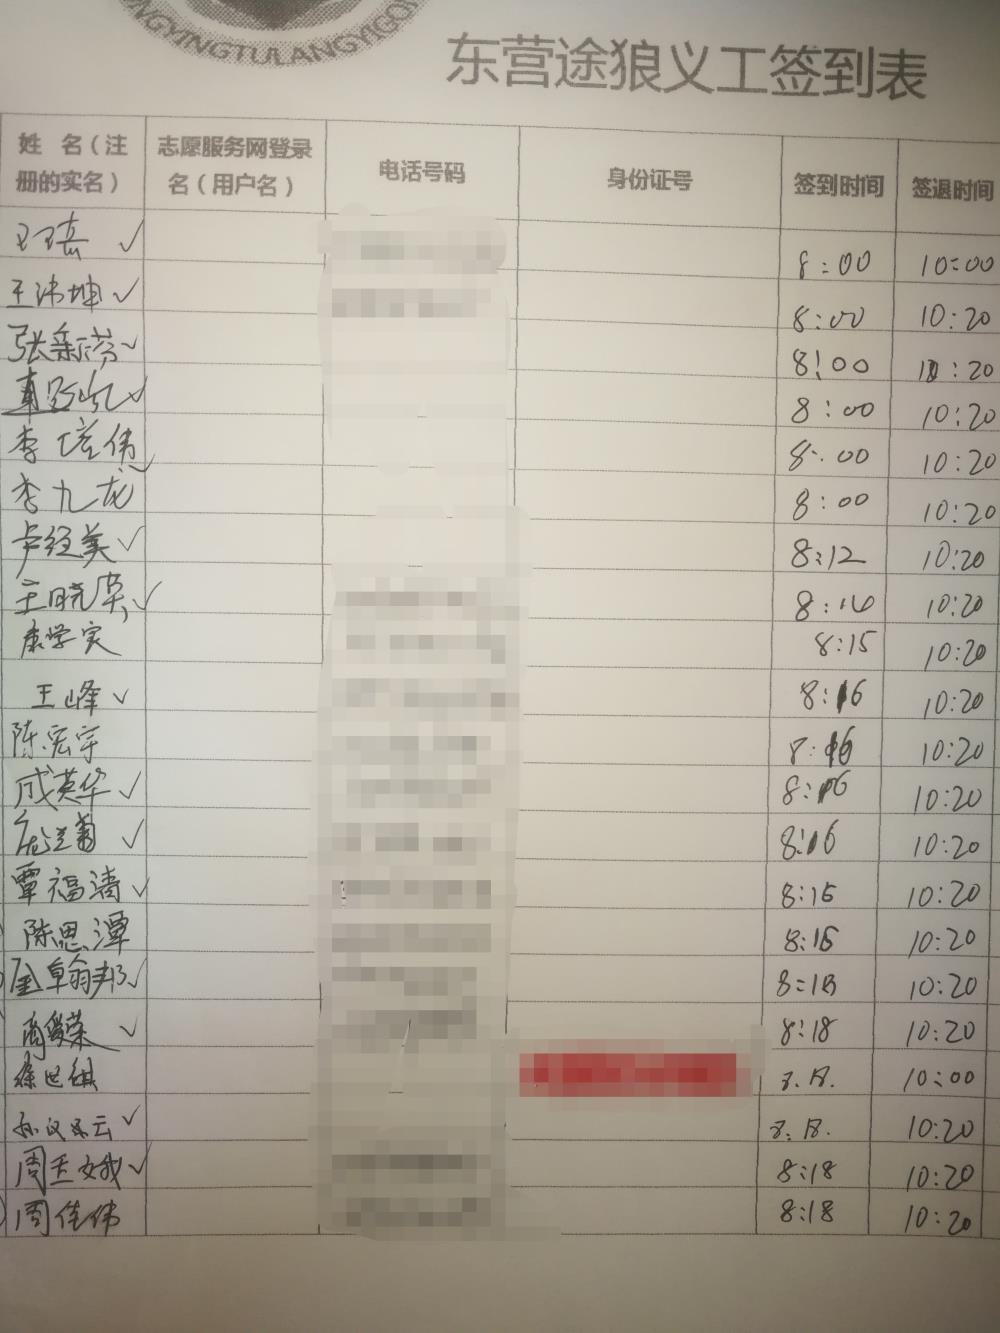 NGYINGTULANGYIGON
东营途狼义工签到表
姓 名（注册的实名） 志愿服务网登录名（用户名） 电话号码 身份证号 签到时间 签退时间
8:00 10:00
王沛坤 ✓ 8:00 10:20
张新芳 ✓ 8:00 10:20
8:00 10:20
李培伟 ✓ 8:00 10:20
李九龙 8:00 10:20
卢经美 ✓ 8:12 10:20
王晓英 ✓ 8:16 10:20
康学实 8:15 10:20
王峰 ✓ 8:16 10:20
陈宏宇 8:16 10:20
成英华 ✓ 8:16 10:20
庞兰菊 ✓ 8:16 10:20
覃福涛 ✓ 8:16 10:20
陈思潭 8:16 10:20
翰邦 ✓ 8:18 10:20
荣 ✓ 8:18 10:20
徐世祺 8.18. 10:00
孙云 ✓ 8.18. 10:20
周玉娥 ✓ 8:18 10:20
周佳伟 8:18 10:20